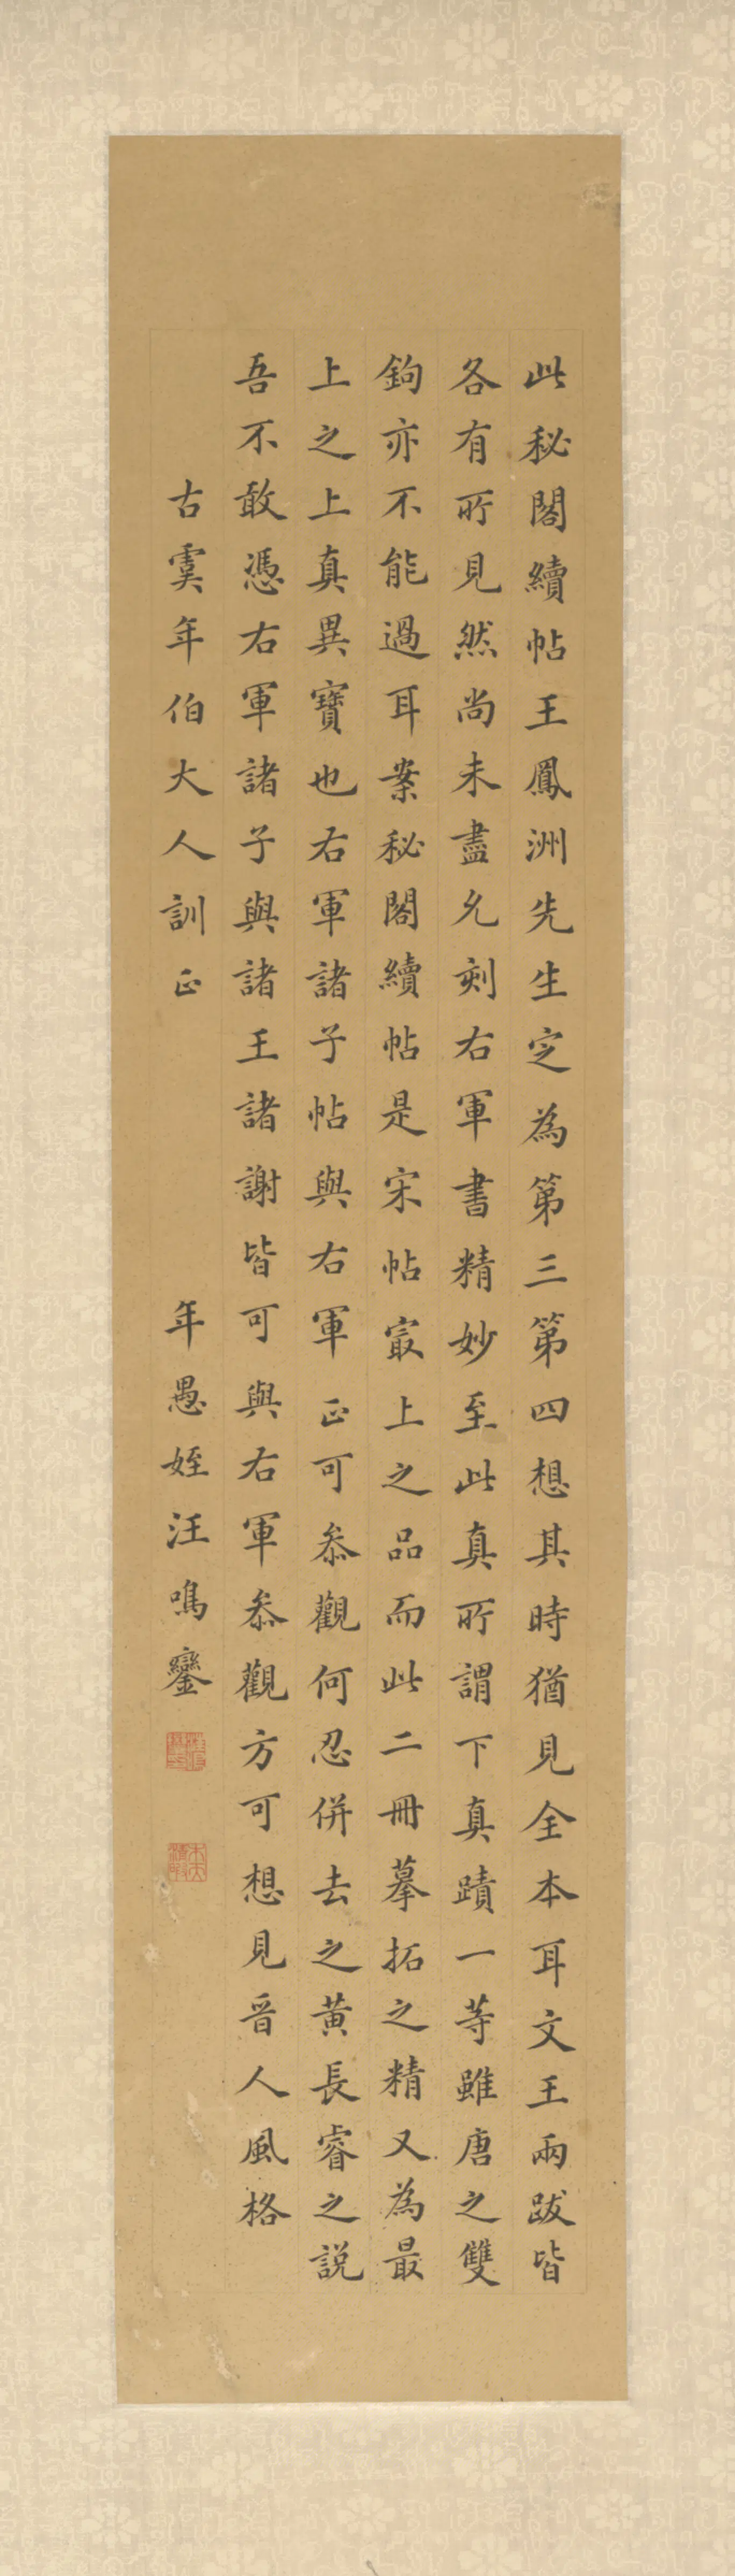 此秘閣續帖王鳳洲先生定為第三第四想其時猶見全本耳文王兩跋皆
各有所見然尚未盡允刻右軍書精妙至此真所謂下真蹟一等雖唐之雙
鉤亦不能過耳案秘閣續帖是宋帖冣上之品而此二冊摹拓之精又為最
上之上真異寶也右軍諸子帖與右軍正可叅觀何忍併去之黃長睿之説
吾不敢憑右軍諸子與諸王諸謝皆可與右軍叅觀方可想見晉人風格
古虞年伯大人訓正
年愚姪汪鳴鑾